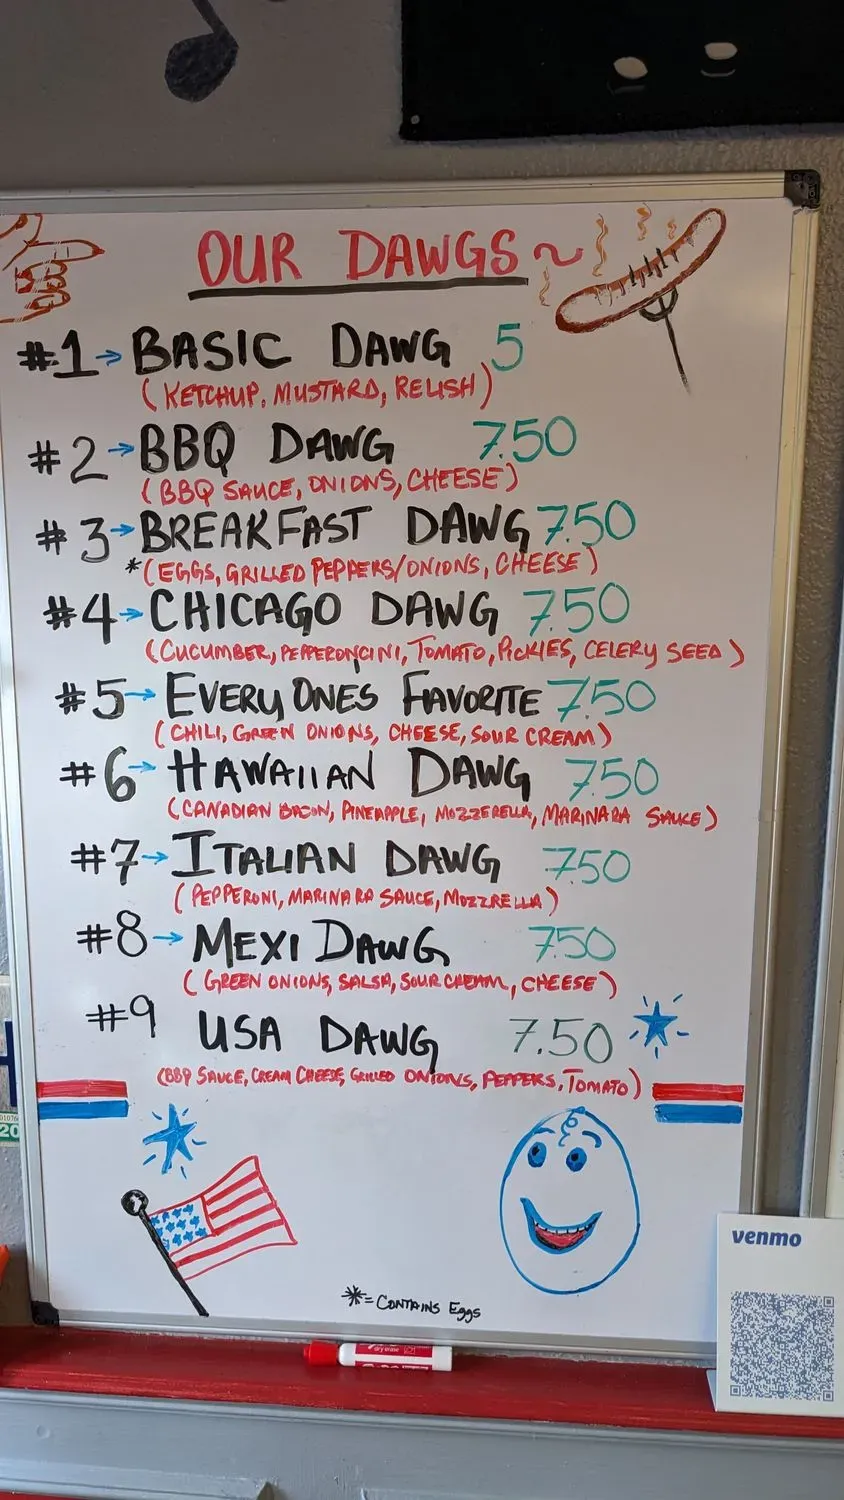 OUR DAWGS~
#1→BASIC DAWG 5
(KETCHUP, MUSTARD, RELISH)
#2→BBQ DAWG 7.50
(BBQ SAUCE, ONIONS, CHEESE)
#3→BREAKFAST DAWG 7.50
*(EGGS, GRILLED PEPPERS/ONIONS, CHEESE)
#4→CHICAGO DAWG 7.50
(CUCUMBER, PEPPERONCINI, TOMATO, PICKLES, CELERY SEED)
#5→EVERYONE'S FAVORITE 7.50
(CHILI, GREEN ONIONS, CHEESE, SOUR CREAM)
#6→HAWAIIAN DAWG 7.50
(CANADIAN BACON, PINEAPPLE, MOZZERELLA, MARINARA SAUCE)
#7→ITALIAN DAWG 7.50
(PEPPERONI, MARINARA SAUCE, MOZZRELLA)
#8→MEXI DAWG 7.50
(GREEN ONIONS, SALSA, SOUR CREAM, CHEESE)
#9 USA DAWG 7.50
(BBQ SAUCE, CREAM CHEESE, GRILLED ONIONS, PEPPERS, TOMATO)
*=CONTAINS EGGS
venmo
dry erase